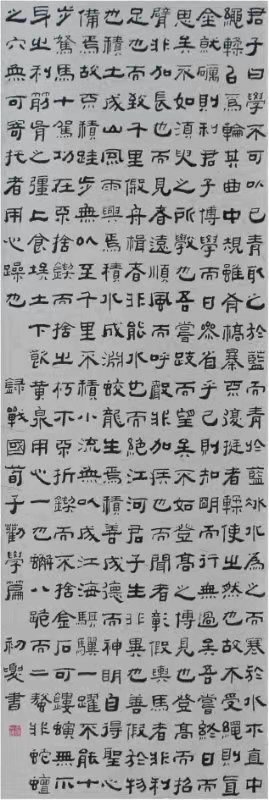 君子曰學不可已青取之於藍而青於藍冰水爲之而寒於水木直中
繩輮以爲輪其曲中規雖有槁暴不復挺者輮使之然也故木受繩則直
金就礪則利君子博學而日參省乎己則知明而行無過矣吾嘗終日而
思矣不如須臾之所學也吾嘗跂而望矣不如登高之博見也登高而招
臂非加長也而見者遠順風而呼聲非加疾也而聞者彰假輿馬者非利
足也而致千里假舟楫者非能水也而絕江河君子生非異也善假於物
也積土成山風雨興焉積水成淵蛟龍生焉積善成德而神明自得聖心
備焉故不積跬步無以至千里不積小流無以成江海騏驥一躍不能十
步駑馬十駕功在不捨鍥而捨之朽木不折鍥而不捨金石可鏤螾無爪
身之利筋骨之彊上食埃土下飲黃泉用心一也蟹八跪而二螯非蛇蟺
之穴無可寄托者用心躁也 錄戰國荀子勸學篇 初書